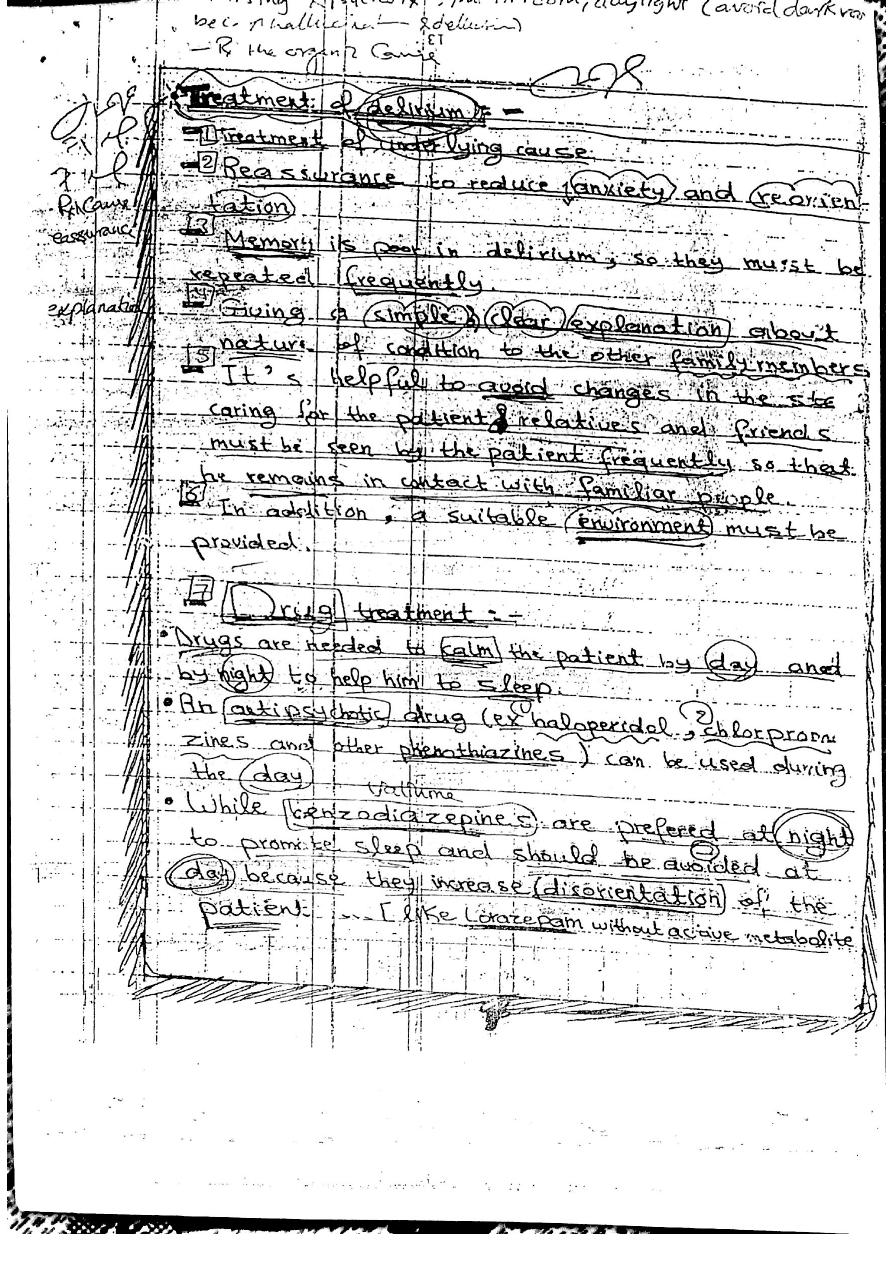 (avoid dark
- R the organic Cause
13
Treatment of delirium : -
1 Treatment of underlying cause.
2 Reassurance to reduce ↓ anxiety and reorien
tation
3 Memory is poor in delirium, so they must be
repeated frequently.
Giving a simple & clear explanation about
nature of condition to the other family members
5 It's helpful to avoid changes in the
caring for the patient & relatives and friends
must be seen by the patient frequently so that
he remains in contact with familiar people.
6 In addition, a suitable environment must be
provided.
7 Drug treatment : -
• Drugs are needed to calm the patient by day and
by night to help him to sleep.
• An antipsychotic drug (ex 1 haloperidol, 2 chlorproma
zines and other phenothiazines) can be used during
the day
Vallume
• While benzodiazepines are prefered at night
to promote sleep and should be avoided at
day because they increase disorientation of the
patient ... [ like Lorazepam without active metabolite
Cause
eassurance
explanation